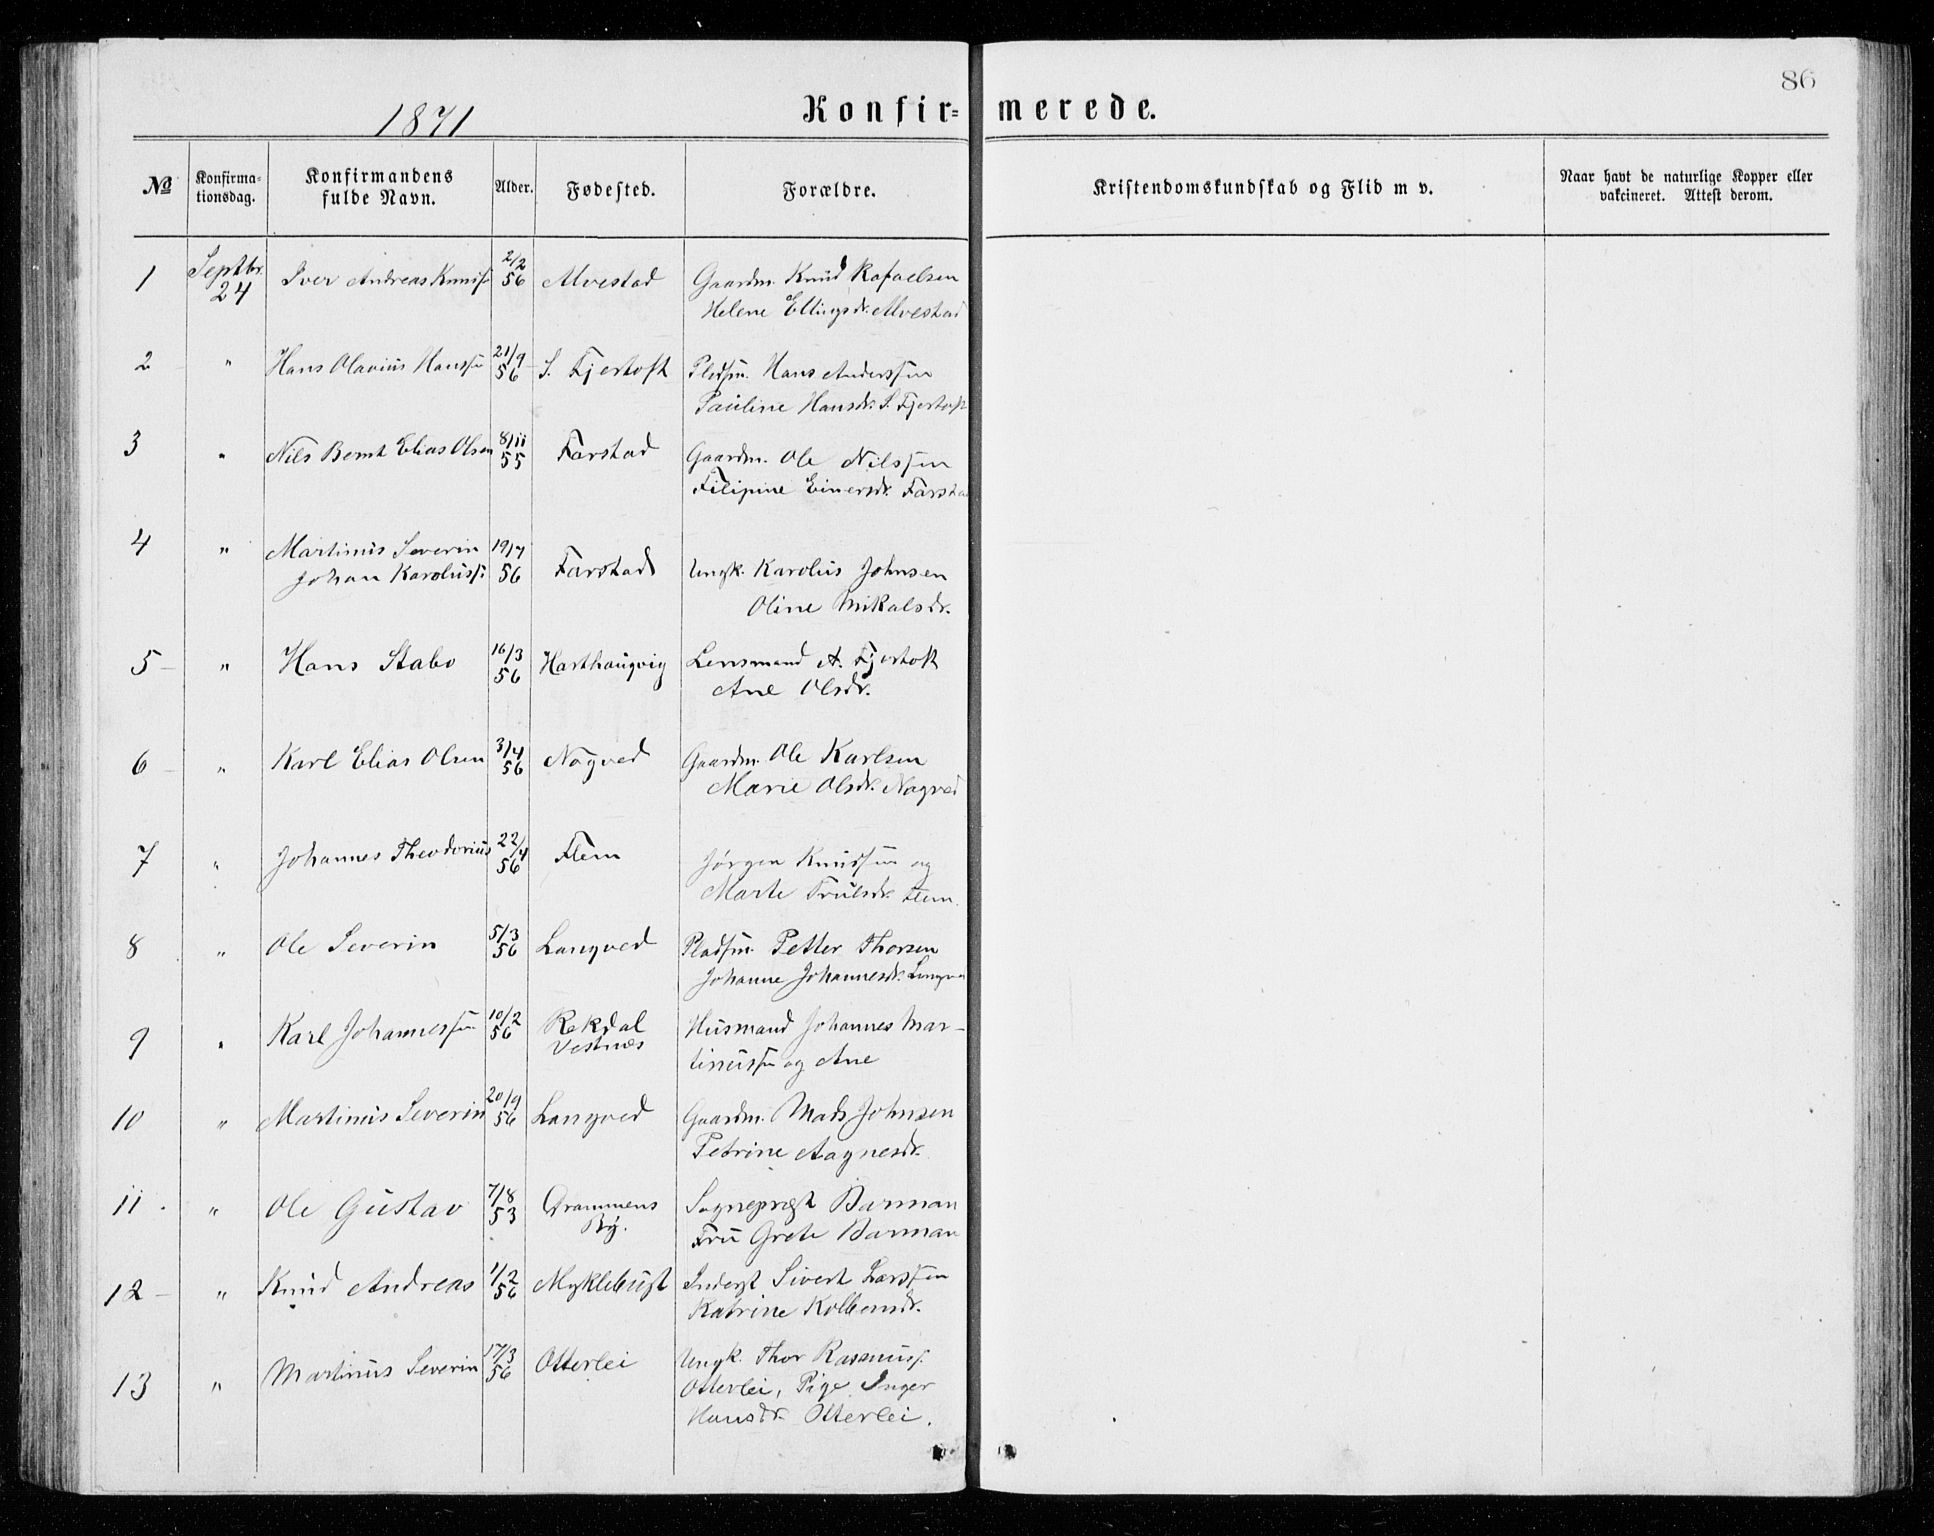 86
1871
Konfir= merede.
№
Konfirma-
tionsdag.
Konfirmandens
fulde Navn.
Alder.
Fødested.
Forældre.
Kristendomskundskab og Flid m v.
Naar havt de naturlige Kopper eller
vakcineret. Attest derom.
1 Septbr. 24 Iver Andreas Knuds. 2/2 56 Alvestad Gaardm. Knud Rafaelsen
Helene Ellingsdr. Alvestad
2 " Hans Olavius Hanssen 21/9 56 S. Fjertoft Pladsm. Hans Anderssen
Pauline Hansdr. S. Fjertoft
3 " Nils Bernt Elias Olsen 8/11 55 Farstad Gaardm. Ole Nilssen
Filipine Einersdr. Farstad
4 " Martinus Severin 19/7
Johan Karoluss. 56 Farstad Ungk. Karolus Johnsen
Oline Mikalsdr.
5 " Hans Stabo 16/3 56 Harthaugvig Lensmand A. Fjertoft
Ane Olsdr.
6 " Karl Elias Olsen 3/4 56 Nogved Gaardm. Ole Karlsen
Marie Olsdr. Nogved
7 " Johannes Theodorius 22/4 56 Flem Jørgen Knudsen og
Marte Trulsdr. Flem.
8 " Ole Severin 5/3 56 Langved Pladsm. Petter Thorsen
Johanne Johannesdr. Langved
9 " Karl Johannessen 10/2 56 Rekdal Vestnæs Husmand Johannes Mar-
tinussen og Ane
10 " Martinus Severin 20/9 56 Langved Gaardm. Mads Johnsen
Petrine Aagnesdr.
11 " Ole Gustav 7/8 53 Drammens By. Sogneprest Barman
Fru Grete Barman
12 " Knud Andreas 1/2 56 Myklebugt Inderst Sivert Larssen
Katrine Kolbensdr.
13 " Martinus Severin 17/3 56 Otterlei Ungk. Thor Rasmuss.
Otterlei, Pige Inger
Hansdr. Otterlei.